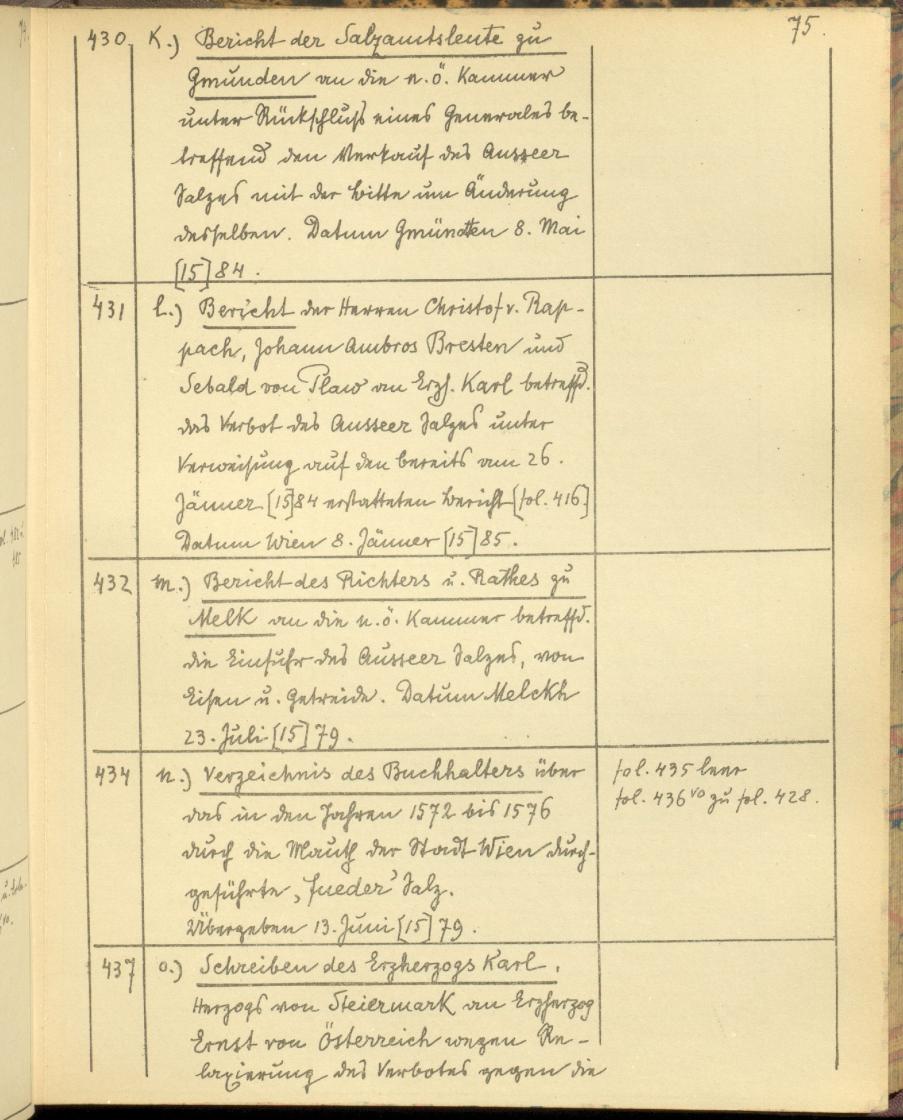 75.
430. K.) Bericht der Salzamtsleute zu
Gmunden an die n.ö. Kammer
unter Rückschluß eines Generales be-
treffend den Verkauf des Ausseer
Salzes mit der Bitte um Änderung
desselben. Datum Gmündten 8. Mai
[15]84.
431 l.) Bericht der Herren Christof v. Rap-
pach, Johann Ambros Bresten und
Sebald von Plaw an Erzh. Karl betreffd.
das Verbot des Ausseer Salzes unter
Verweisung auf den bereits am 26.
Jänner [15]84 erstatteten Bericht [fol. 416]
Datum Wien 8. Jänner [15]85.
432 m.) Bericht des Richters u. Rathes zu
Melk an die n.ö. Kammer betreffd.
die Einfuhr des Ausseer Salzes, von
Eisen u. Getreide. Datum Melckh
23. Juli [15]79.
434 n.) Verzeichnis des Buchhalters über
das in den Jahren 1572 bis 1576
durch die Mauth der Stadt Wien durch-
geführte, "fueder" Salz.
Übergeben 13. Juni [15]79.
fol. 435 leer
fol. 436vo zu fol. 428.
437 o.) Schreiben des Erzherzogs Karl,
Herzogs von Steiermark an Erzherzog
Ernst von Österreich wegen Re-
laxierung des Verbotes gegen die